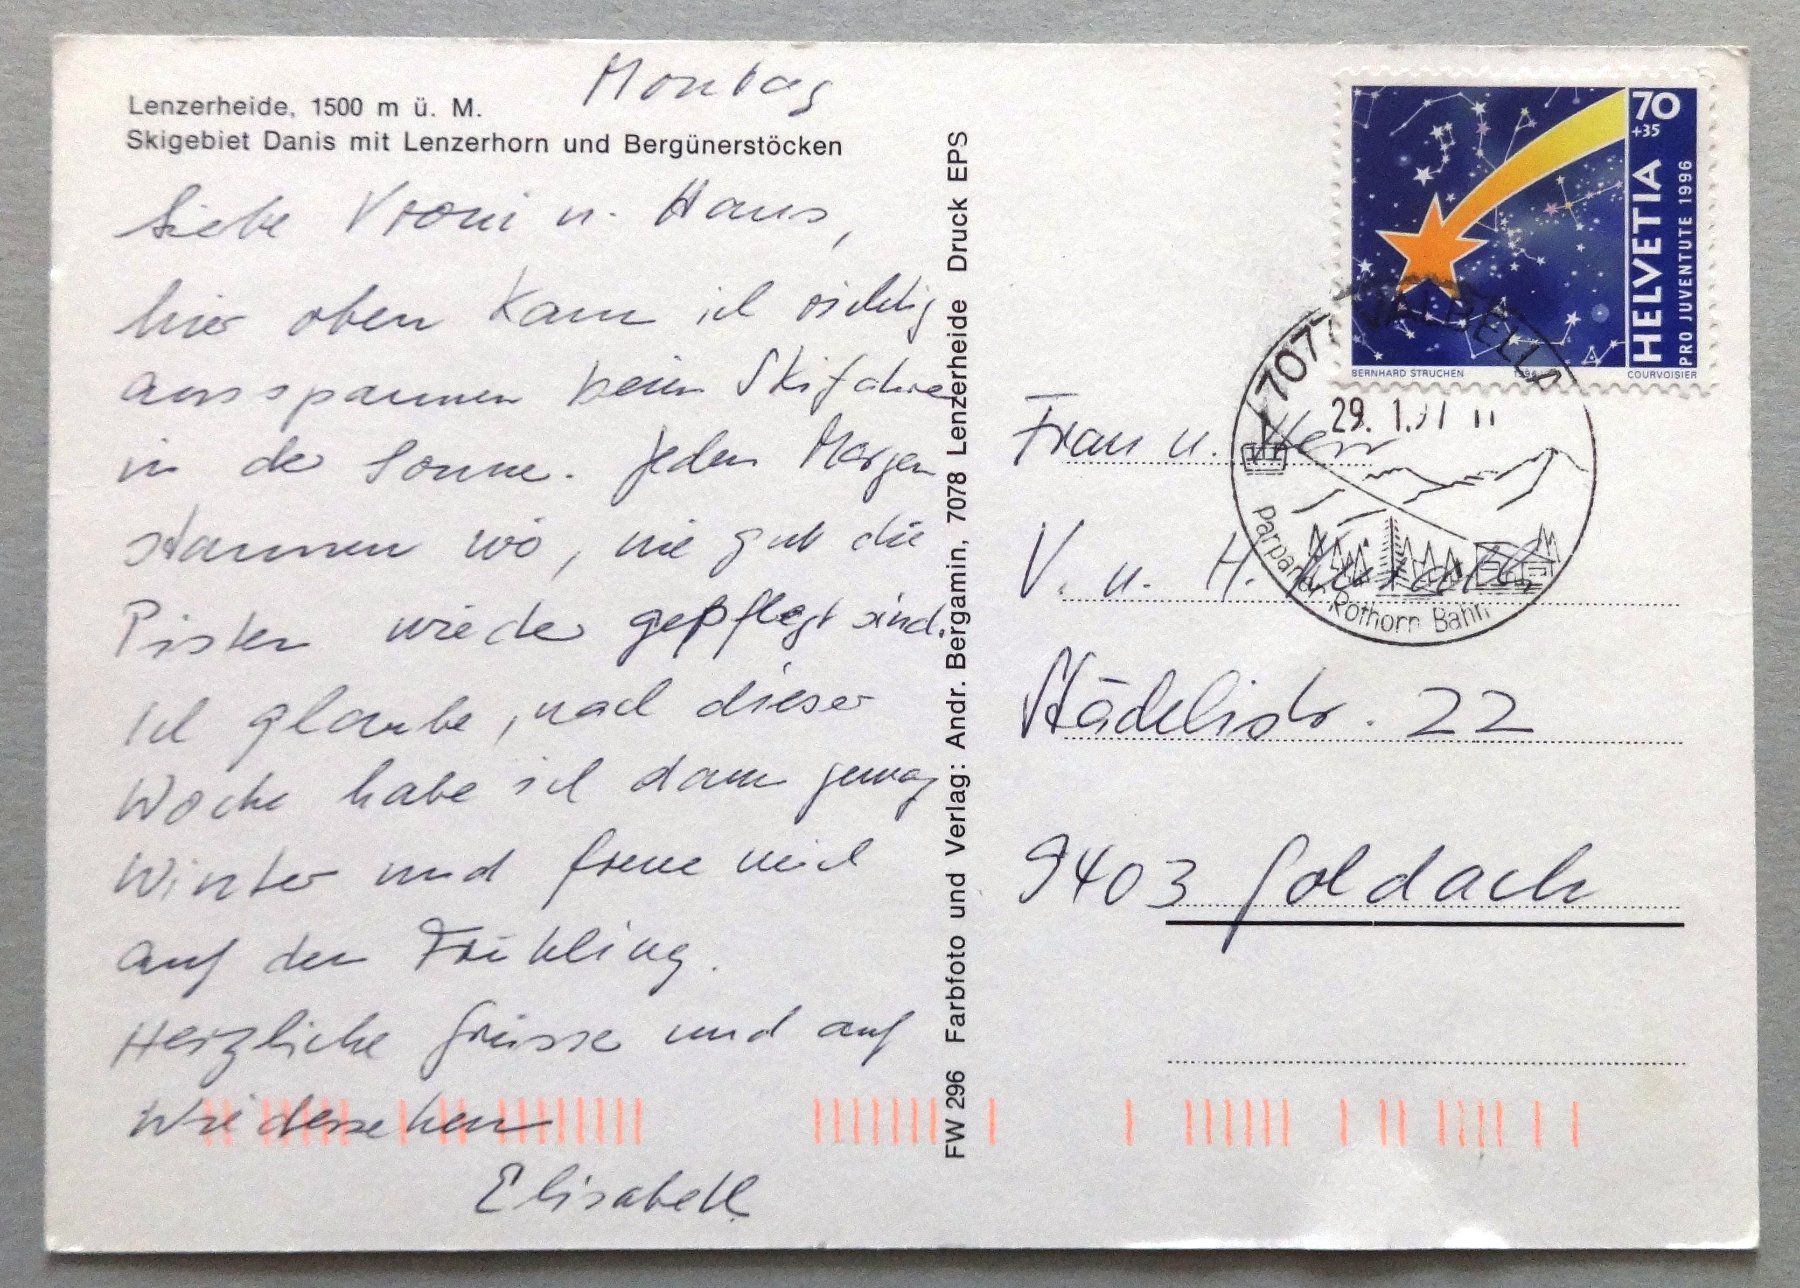 Montag
Lenzerheide, 1500 m ü. M.
Skigebiet Danis mit Lenzerhorn und Bergünerstöcken
Liebe Vroni u. Hans,
hier oben kann ich richtig
ausspannen beim Skifahren
in der Sonne. Jeden Morgen
staunen wir, wie gut die
Pisten wieder gepflegt sind.
Ich glaube, nach dieser
Woche habe ich dann genug
Winter und freue mich
auf den Frühling.
Herzliche Grüsse und auf
Wiedersehen
Elisabeth
FW 296 Farbfoto und Verlag: Andr. Bergamin, 7078 Lenzerheide Druck EPS
70
+35
HELVETIA
PRO JUVENTUTE 1996
BERNHARD STRUCHEN 1996 COURVOISIER
7077 VALBELLA
29. 1.97
Parpaner Rothorn Bahn
Frau u. Herr
V. u. H.
Städelistr. 22
9403 Goldach